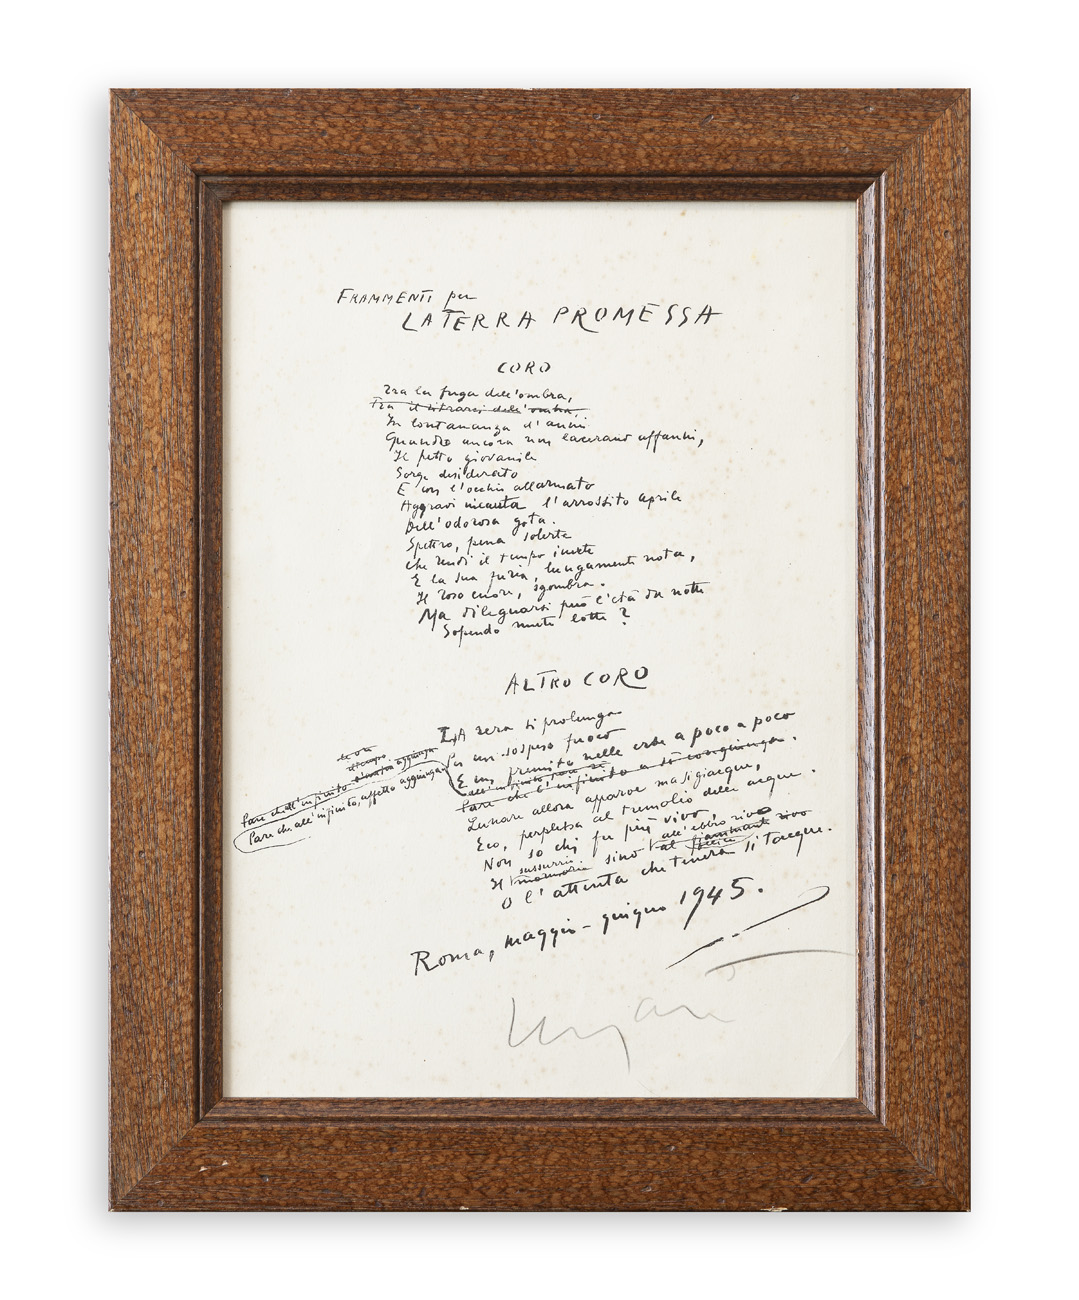 FRAMMENTI per
LA TERRA PROMESSA
CORO
Tra la fuga dell'ombra,
Tra il ritrarsi dell'ombra,
In lontananza d'anni
Quando ancora non lacerano affanni,
Il petto giovanile
Sorge desiderato
E con l'occhio allarmato
Aggravi incauta l'arrossito aprile
Dell'odorosa gota.
Spettro, pena solerte
Che rendi il tempo inerte
E la sua furia, lungamente nota,
Il roso cuore, sgombra.
Ma dileguarsi può l'età da notte
Sopendo mute lotte?
ALTRO CORO
LA sera si prolunga
Per un sospeso fuoco
E un fremito nelle erbe a poco a poco
Pare che l'infinito a sé congiunga.
Pare che all'infinito, affetto aggiunga
Lunare allora apparve
Eco, perplessa al tremolio delle acque.
Non so chi fu più vivo,
all'ebbro rivo
Il memoria sino al fiammante rivo
sussurrio
O l'attenta che tenera si tacque.
Roma, maggio - giugno 1945.